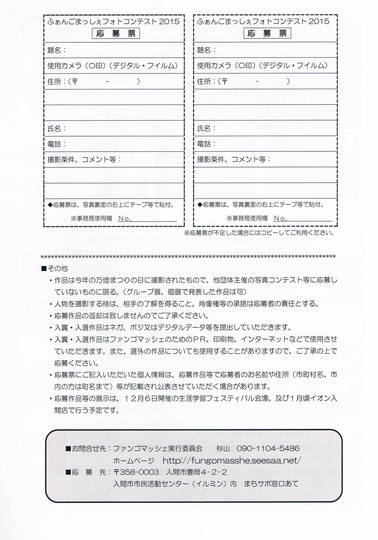 ふぁんごまっしぇフォトコンテスト2015
応募票
題名：
使用カメラ（○印）（デジタル・フイルム）
住所：（〒　　－　　）
氏名：
電話：
撮影条件、コメント等：
◆応募票は、写真裏面の右上にテープ等で貼付。
※事務局使用欄　No.
ふぁんごまっしぇフォトコンテスト2015
応募票
題名：
使用カメラ（○印）（デジタル・フイルム）
住所：（〒　　－　　）
氏名：
電話：
撮影条件、コメント等：
◆応募票は、写真裏面の右上にテープ等で貼付。
※事務局使用欄　No.
※応募票が不足した場合にはコピーしてご利用ください。
■その他
・作品は今年の万燈まつりの日に撮影されたもので、他団体主催の写真コンテスト等に応募し
ていないものに限る。（グループ展、個展で発表した作品は可）
・人物を撮影する時は、相手の了解を得ること。肖像権等の承諾は応募者の責任とする。
・応募作品の返却は致しませんのでご了承ください。
・入賞・入選作品はネガ、ポジ又はデジタルデータ等を提出していただきます。
・入賞・入選作品はファンゴマッシェのためのＰＲ、印刷物、インターネットなどで使用させ
ていただきます。また、選外の作品についても使用することがありますので、ご了承の上で
応募ください。
・応募票にご記入いただいた個人情報は、応募作品等で応募者のお名前や住所（市町村名、市
内の方は町名まで）等が記載され公表させていただく場合があります。
・応募作品等の展示は、１２月６日開催の生涯学習フェスティバル会場、及び１月頃イオン入
間店で行う予定です。
■お問合せ先：ファンゴマッシェ実行委員会　杉山　090-1104-5486
ホームページ　http://fungomasshe.seesaa.net/
■応　募　先：〒358-0003　入間市豊岡4-2-2
入間市市民活動センター（イルミン）内　まちサポ窓口あて